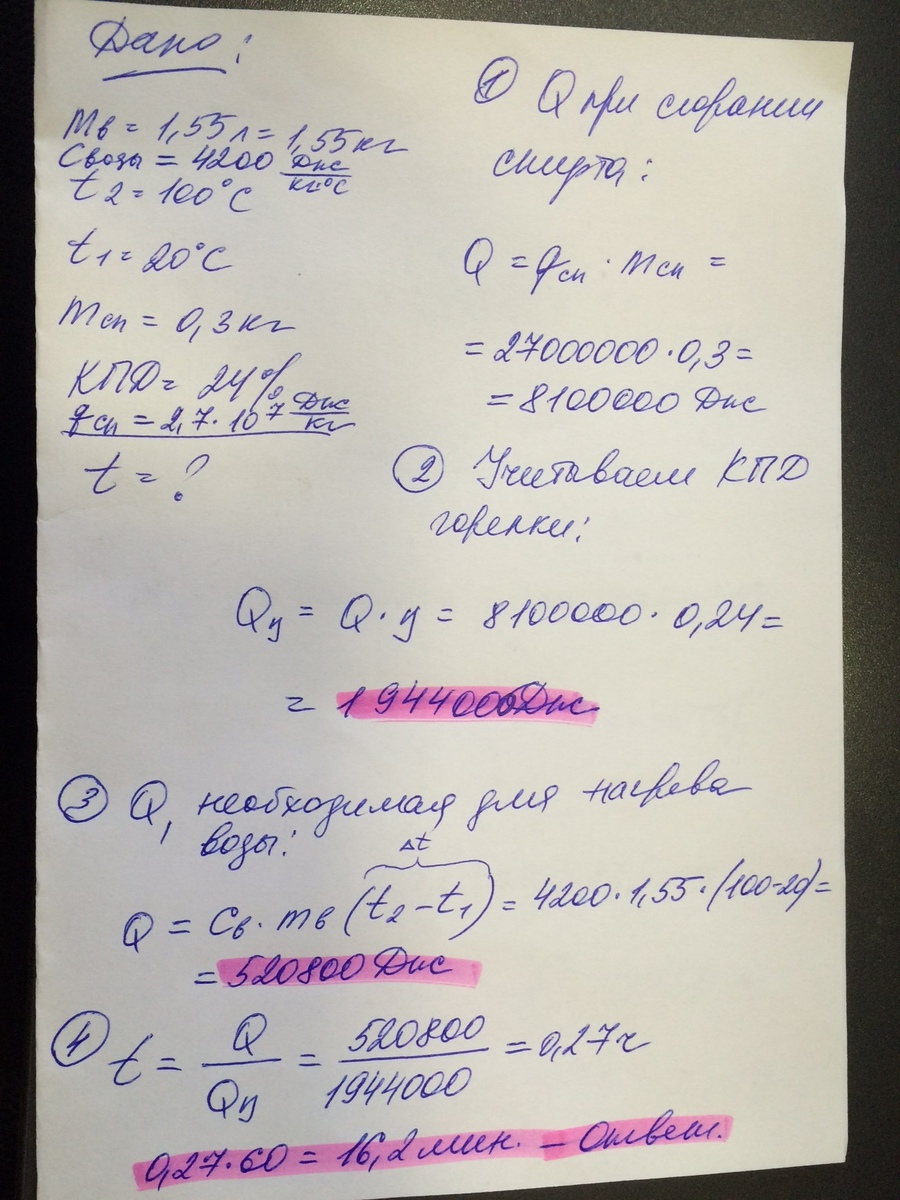 Дано:
mв = 1,55 л = 1,55 кг
Cводы = 4200 Дж/кг·°C
t2 = 100°C
t1 = 20°C
mсп = 0,3 кг
КПД = 24%
qсп = 2,7·10⁷ Дж/кг
t = ?
① Q при сгорании
спирта:
Q = qсп · mсп =
= 27000000 · 0,3 =
= 8100000 Дж
② Учитываем КПД
горелки:
Qη = Q · η = 8100000 · 0,24 =
= 1944000 Дж
③ Q, необходимая для нагрева
воды:
Δt
Q = Cв · mв (t2 - t1) = 4200 · 1,55 · (100-20) =
= 520800 Дж
④ t = Q/Qη = 520800/1944000 = 0,27 ч
0,27·60 = 16,2 мин. – Ответ.